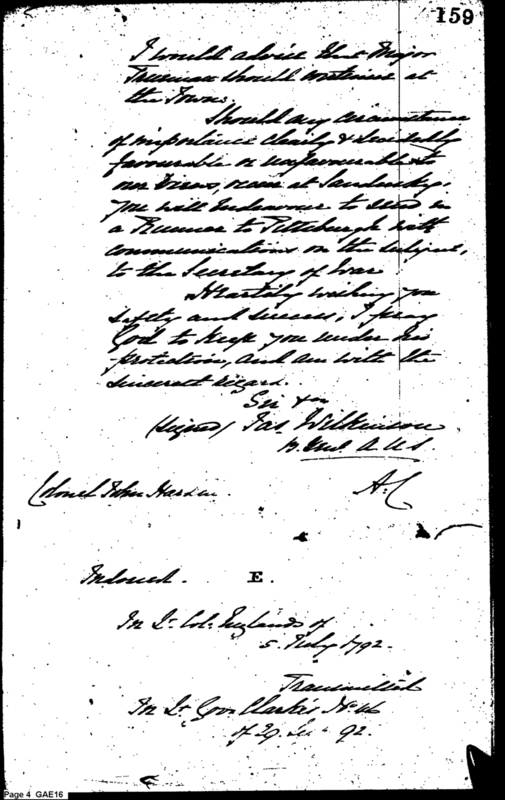 159
I would advise that Major
Trueman should continue at
the Town.
Should any circumstance
of importance clearly & decidedly
favourable or unfavourable to
our Views, occur at Sandusky,
you will endeavour to send in
a Runner to Pittsburgh with
communications on the subject,
to the Secretary of War
Heartily wishing you
safety and success, I pray
God to keep you under his
protection, and am with the
sincerest regard.
Sir &ca
(signed) Jas. Wilkinson
B. Genl. A.U.S.
Colonel John Hardin.
A.C
Indorsed. E.
In Lt. Col. Englands of
5. July 1792.
Transmitted
In Lt. Gov. Clarke's No.
of 29. 92.
Page 4 GAE16